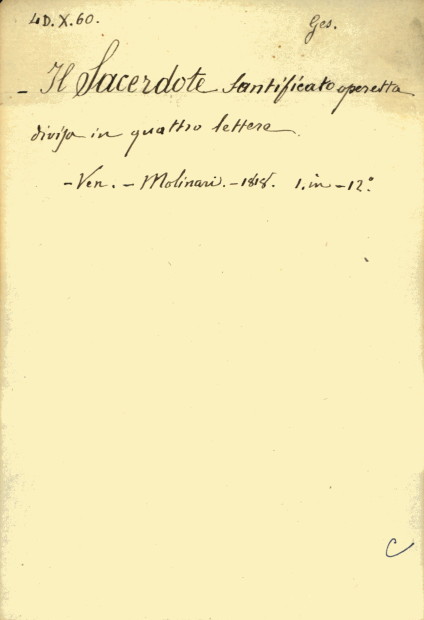 4D.X.60. Ges.
- Il Sacerdote santificato operetta
divisa in quattro lettere
- Ven. - Molinari. - 1818. 1. in - 12.º
C